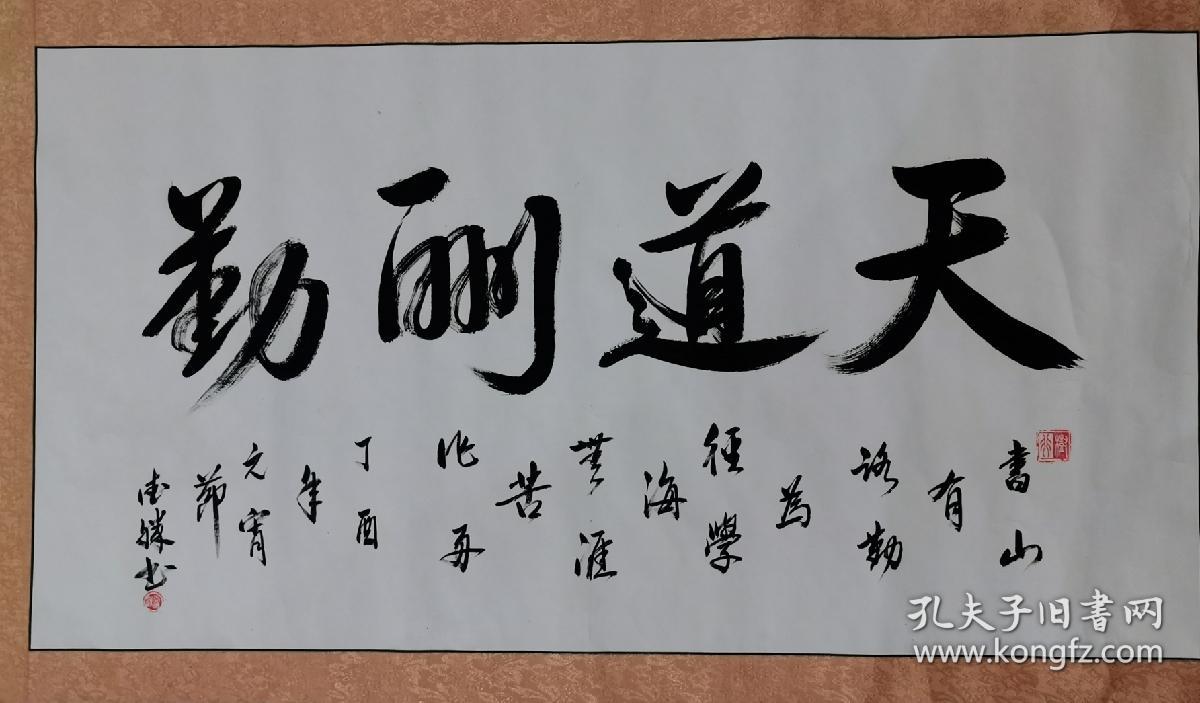 天道酬勤
書山
有
路勤
為
徑學
海
無涯
苦
作舟
丁酉
年
元宵
節
勝书
孔夫子旧書网
www.kongfz.com